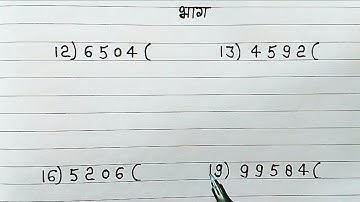 भाग
12) 6504( 13) 4592(
16) 5206( 19) 99584(